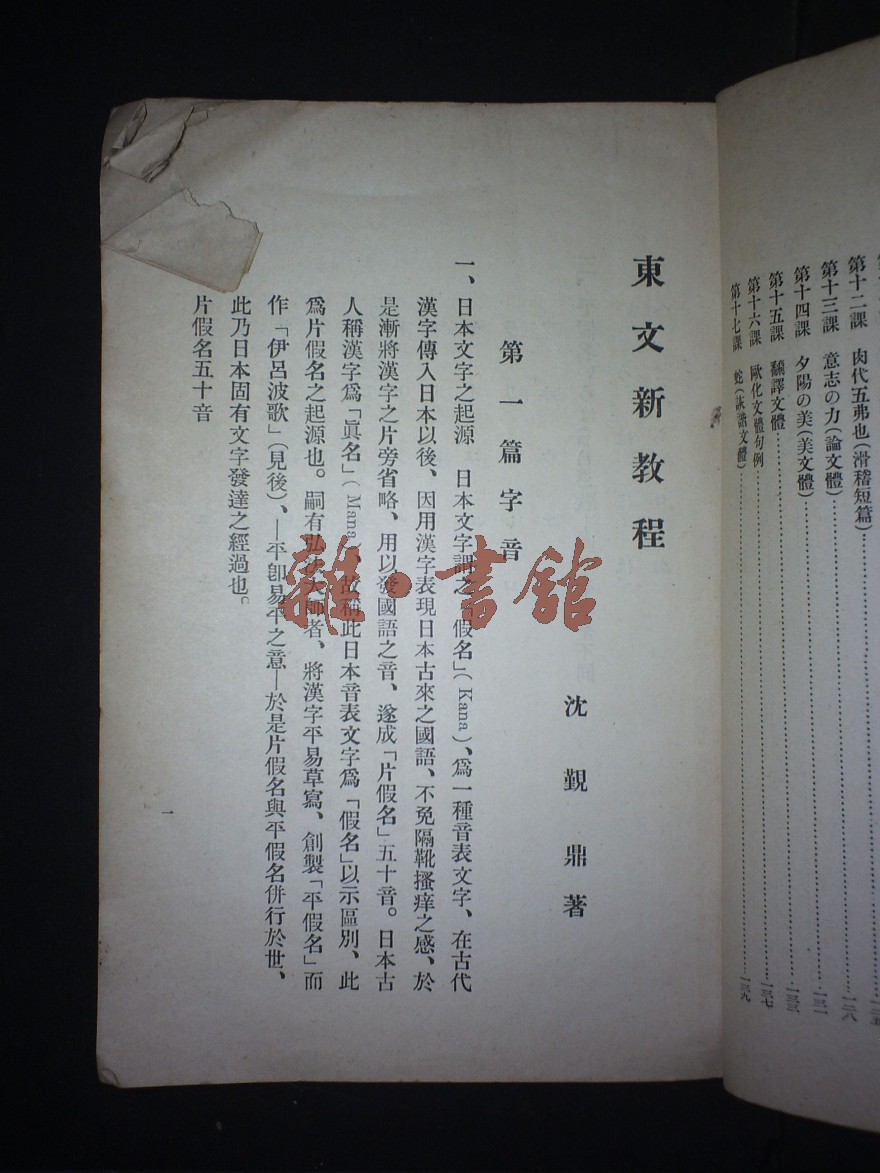 第十二課 肉代五弗也(滑稽短篇)……一二五
第十三課 意志の力(論文體)……一二八
第十四課 夕陽の美(美文體)……一三一
第十五課 飜譯文體……一三三
第十六課 歐化文體句例……一三七
第十七課 蛇(詼諧文體)……一三九
東文新教程
沈覲鼎著
第一篇 字音
一、日本文字之起源 日本文字謂之「假名」(Kana)、爲一種音表文字、在古代
漢字傳入日本以後、因用漢字表現日本古來之國語、不免隔靴搔痒之感、於
是漸將漢字之片旁省略、用以發國語之音、遂成「片假名」五十音。日本古
人稱漢字爲「眞名」(Mana)、故稱此日本音表文字爲「假名」以示區別、此
爲片假名之起源也。嗣有弘法大師者、將漢字平易草寫、創製「平假名」而
作「伊呂波歌」(見後)、—平卽易平之意—於是片假名與平假名併行於世、
此乃日本固有文字發達之經過也。
片假名五十音
一
雜·書館